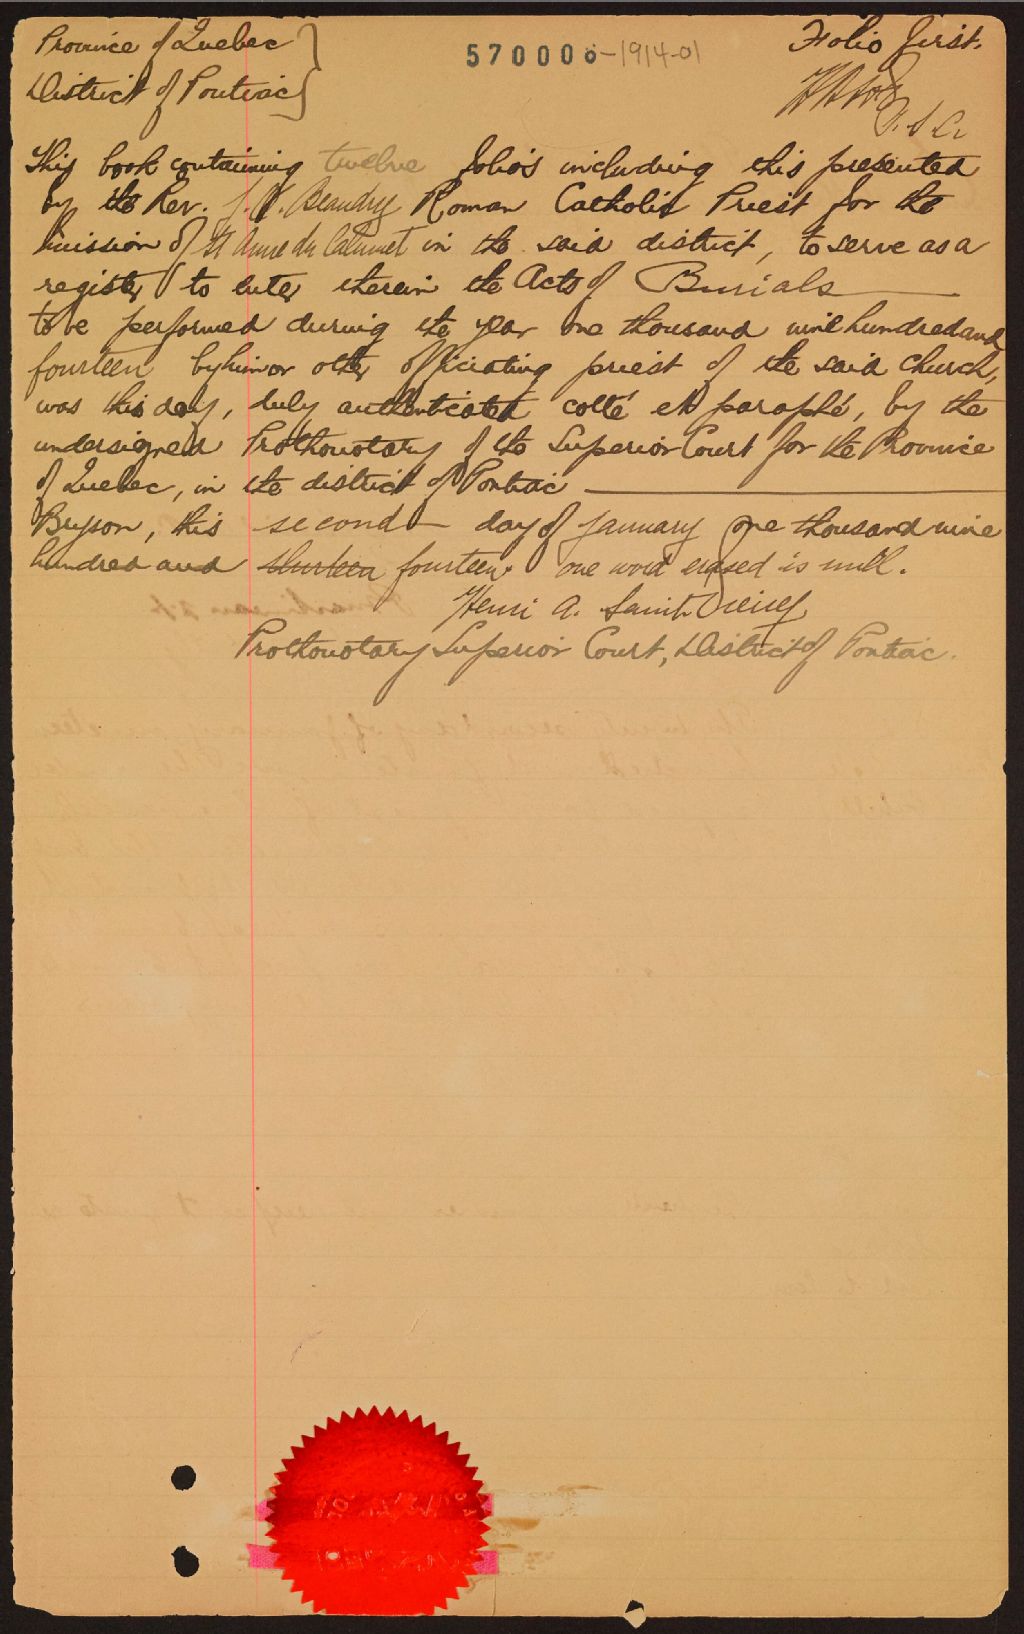 Province of Quebec
District of Pontiac
570006-1914-01
Folio first.
P.S.C.
This book containing twelve folio's including this presented
by the Rev. J. V. Beaudry Roman Catholic Priest for the
mission of St Anne du Calumet in the said district, to serve as a
register to enter therein the Acts of Burials
to be performed during the year one thousand nine hundred and
fourteen by him or other officiating priest of the said Church,
was this day, duly authenticated cotté et paraphé, by the
undersigned Prothonotary of the Superior Court for the Province
of Quebec, in the district of Pontiac
Bryson, this second day of January one thousand nine
hundred and thirteen fourteen. one word erased is null.
Henri A. Saint
Prothonotary Superior Court, District of Pontiac.